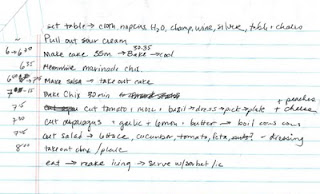 set table → cloth napkins H₂O, champ, wine, silver, table + chairs
~ Pull out sour cream
6-620 make cake 35m → Bake → cool
635 marinade chix
make salsa → take out cake
Bake Chix 30 min
cut tomato + mozz + basil → dress → pick → plate + peaches + cheese
cut asparagus + garlic + lemon + butter → boil cous cous
cut salad → lettuce, cucumber, tomato, feta, → dressing
800 take out chix / place
eat → make icing → serve w/sorbet/ic